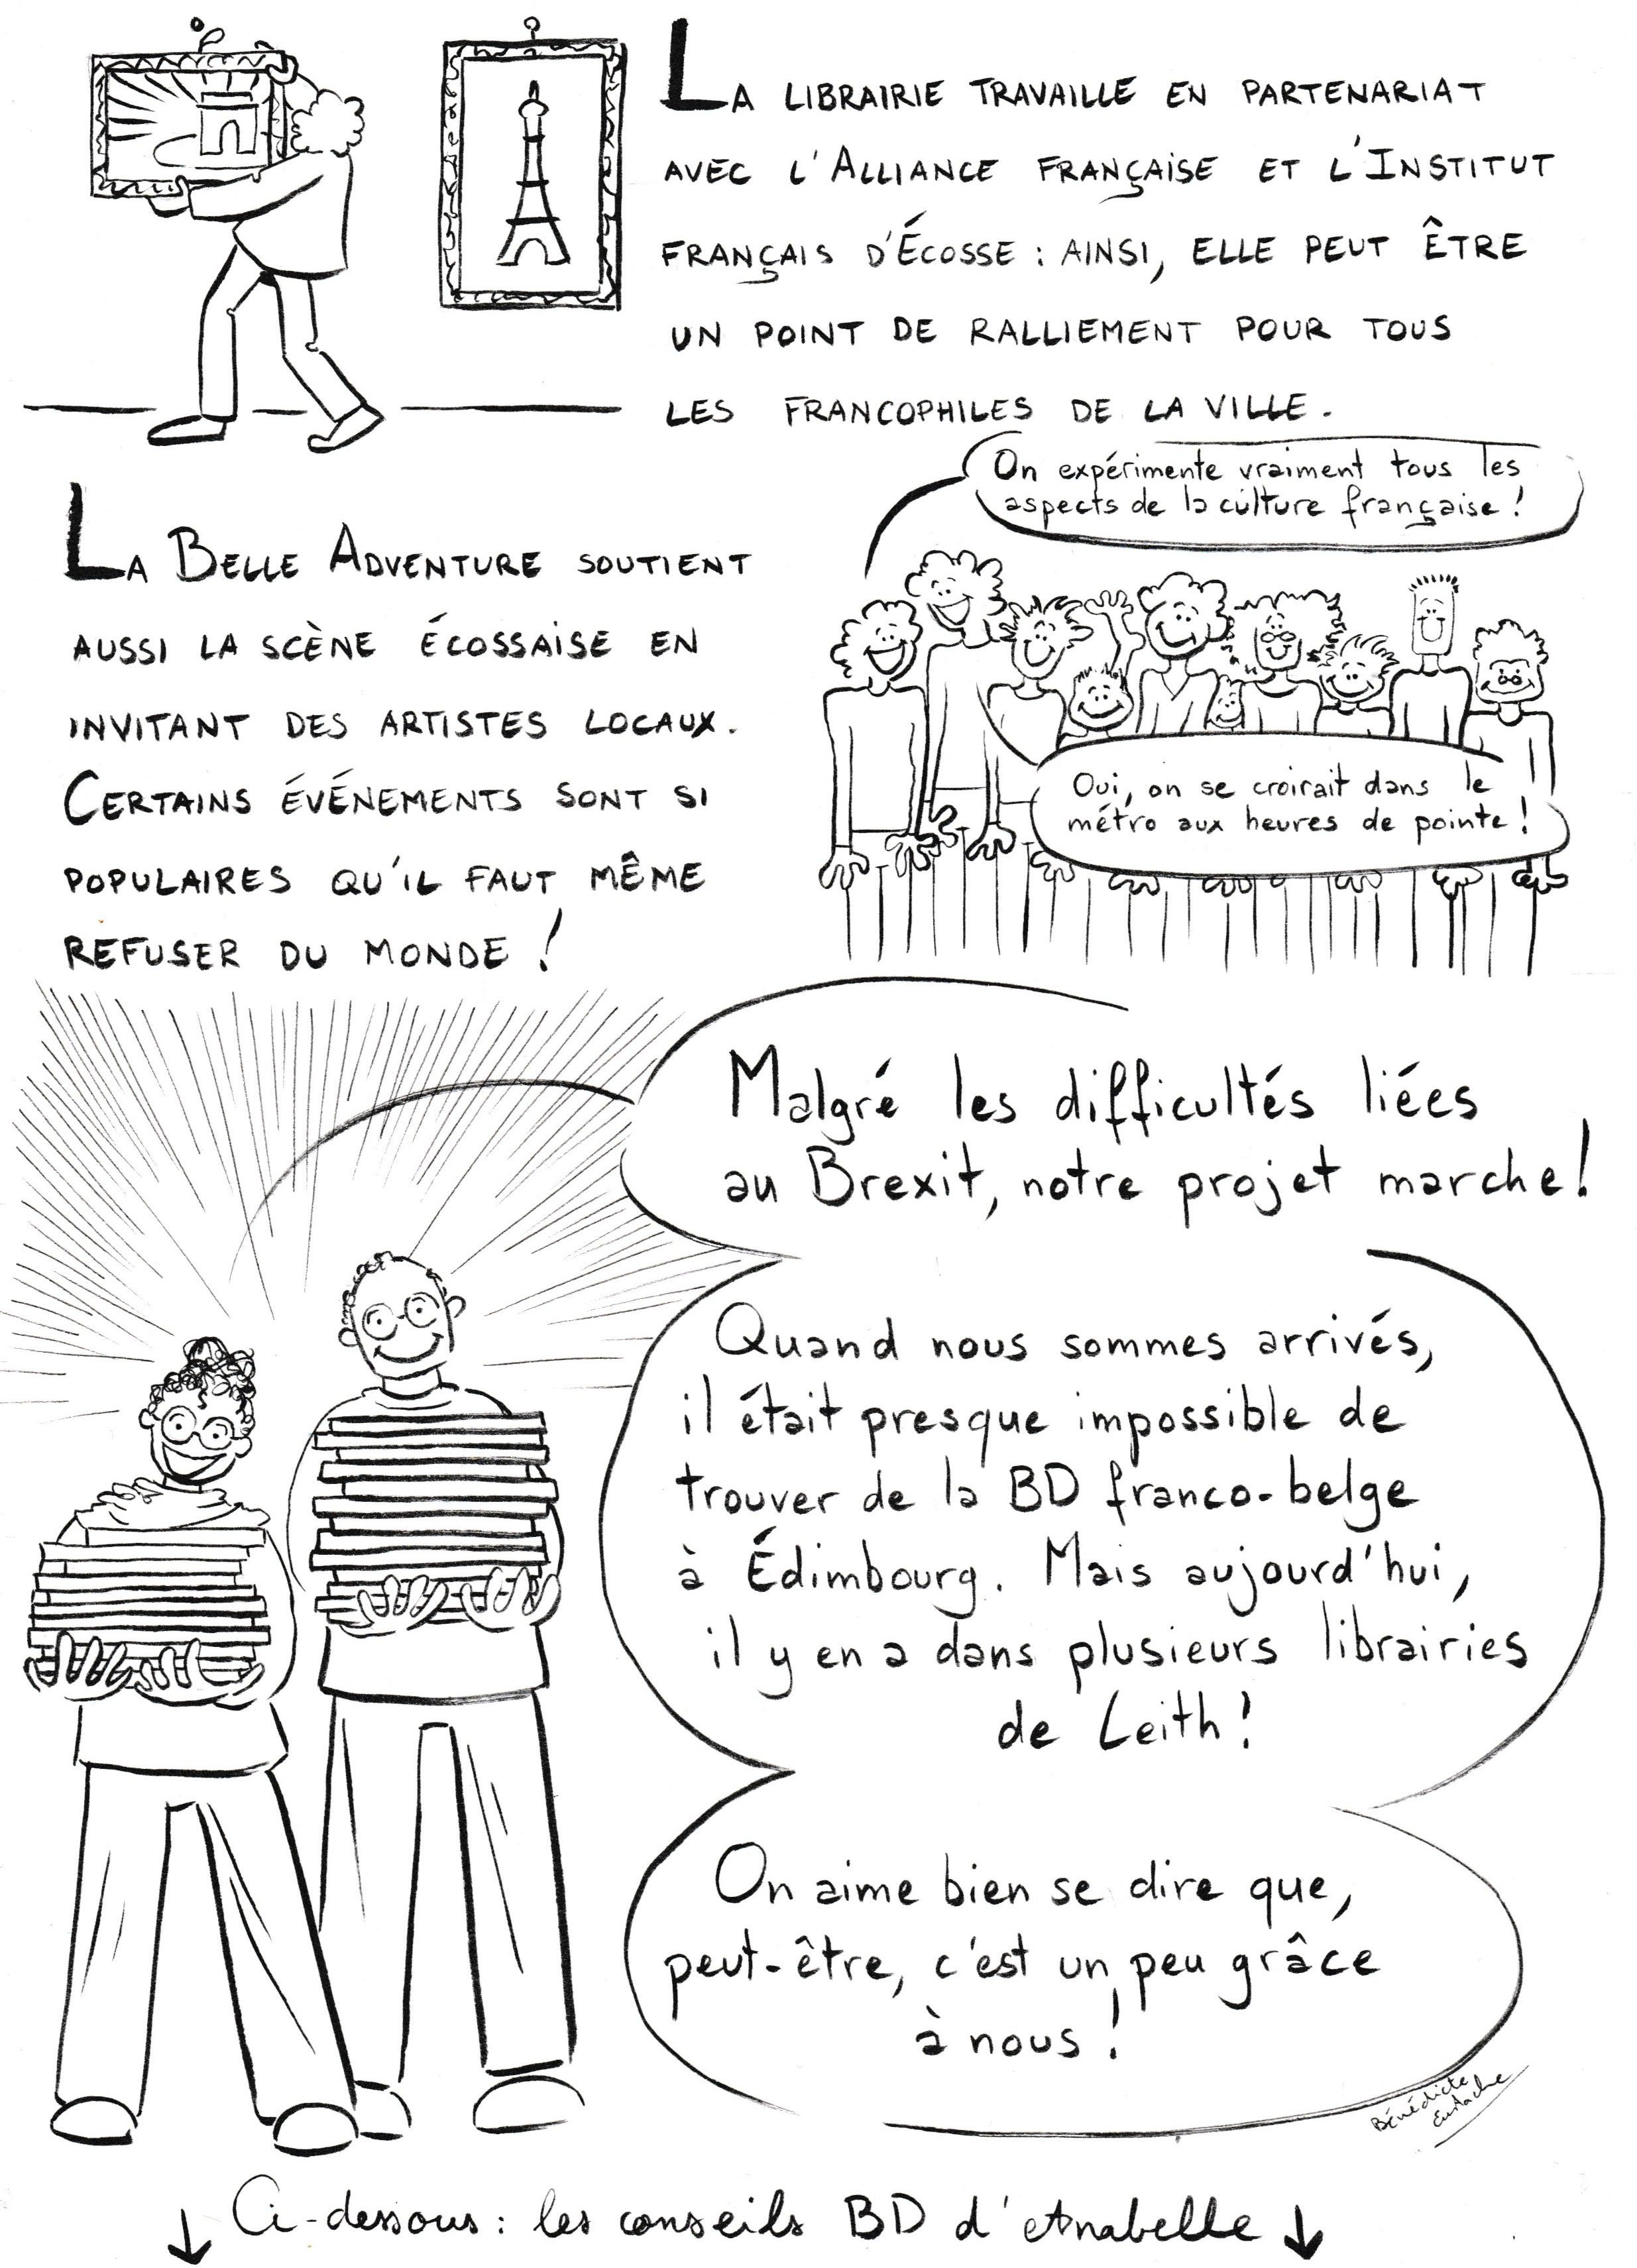 La librairie travaille en partenariat
avec l'Alliance Française et l'Institut
français d'Écosse : ainsi, elle peut être
un point de ralliement pour tous
les francophiles de la ville.
On expérimente vraiment tous les
aspects de la culture française !
La Belle Adventure soutient
aussi la scène écossaise en
invitant des artistes locaux.
Certains événements sont si
populaires qu'il faut même
refuser du monde !
Oui, on se croirait dans le
métro aux heures de pointe !
Malgré les difficultés liées
au Brexit, notre projet marche !
Quand nous sommes arrivés,
il était presque impossible de
trouver de la BD franco-belge
à Édimbourg. Mais aujourd'hui,
il y en a dans plusieurs librairies
de Leith !
On aime bien se dire que,
peut-être, c'est un peu grâce
à nous !
Bénédicte
Eustache
↓ Ci-dessous : les conseils BD d'Anabelle ↓